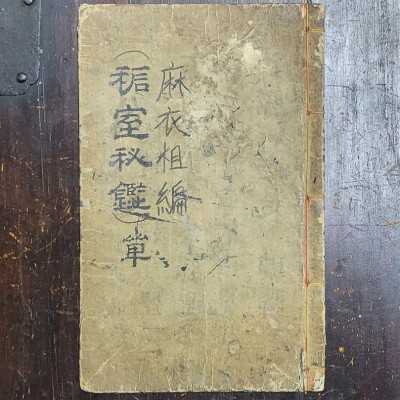 麻衣相編
室秘鑑)單